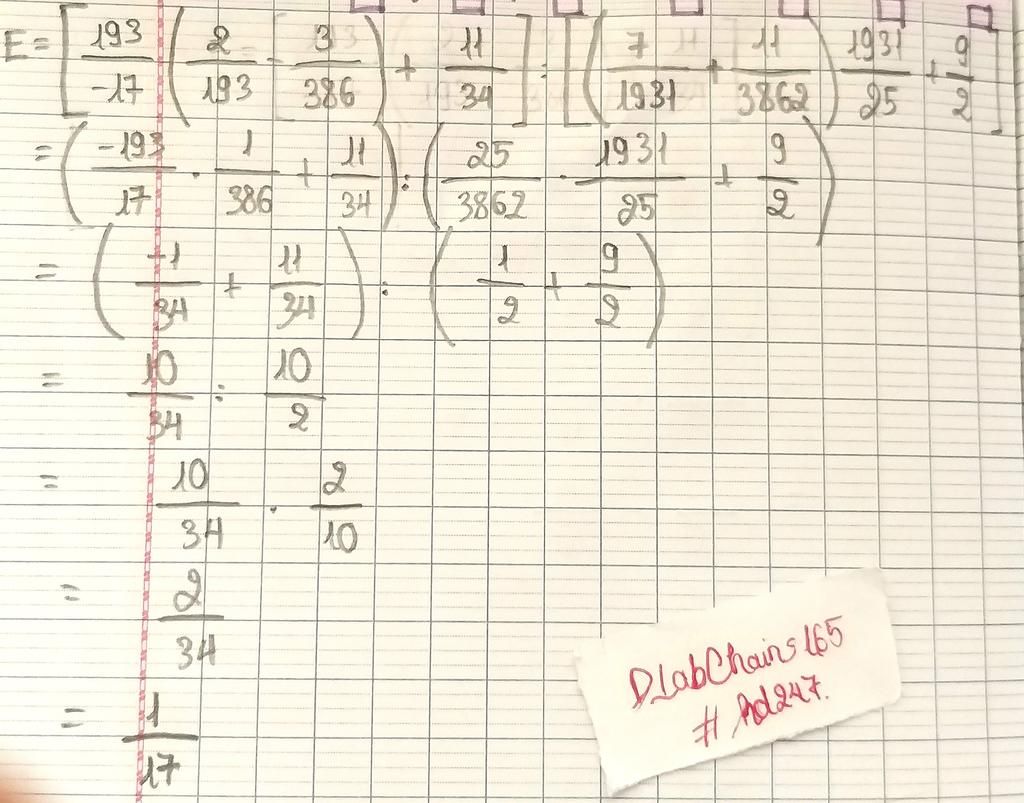 E = [ 193/-17 ( 2/193 - 3/386 ) + 11/34 ] : [ ( 7/1931 + 11/3862 ) 1931/25 + 9/2 ]
= ( -193/17 . 1/386 + 11/34 ) : ( 25/3862 . 1931/25 + 9/2 )
= ( -1/34 + 11/34 ) : ( 1/2 + 9/2 )
= 10/34 : 10/2
= 10/34 . 2/10
= 2/34
= 1/17
DLabChains165
# Ad247.